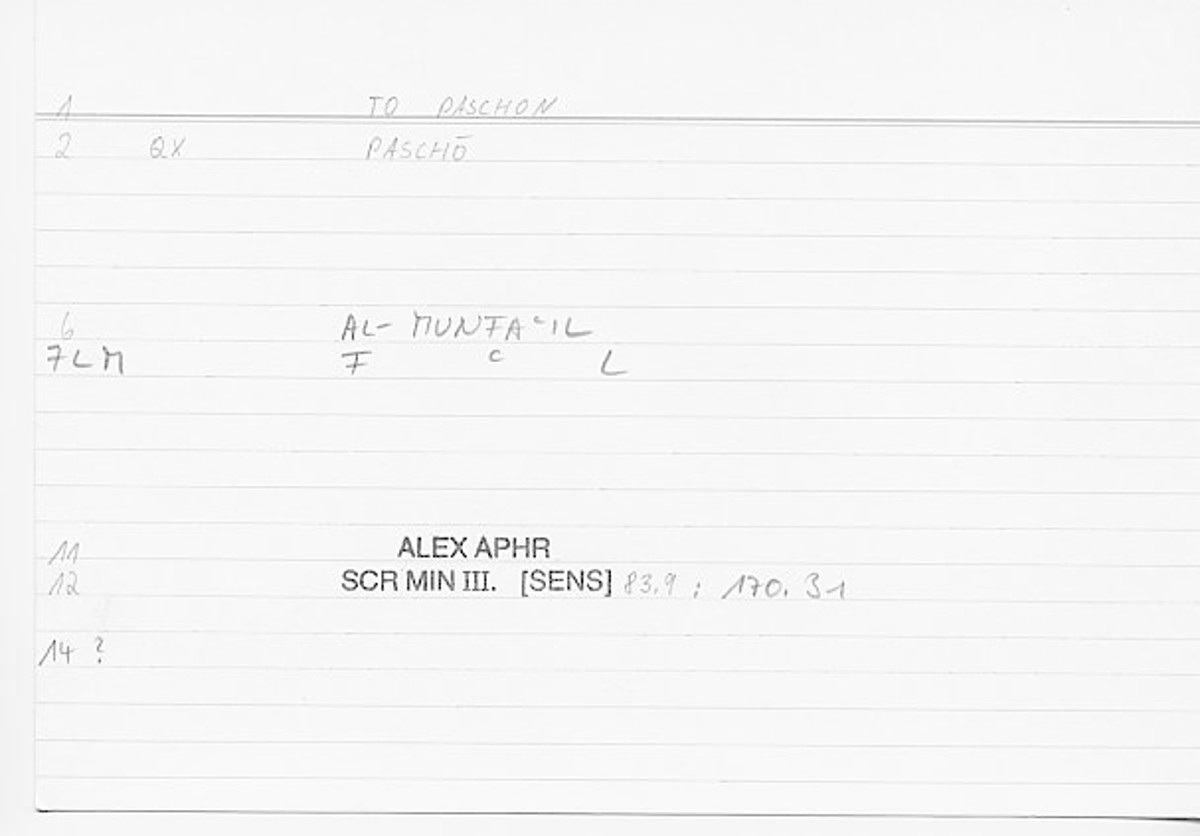 1 TO PASCHON
2 QX PASCHŌ
6 AL- MUNFAʿIL
7LM F ʿ L
11 ALEX APHR
12 SCR MIN III. [SENS] 83.9 ; 170.31
14 ?